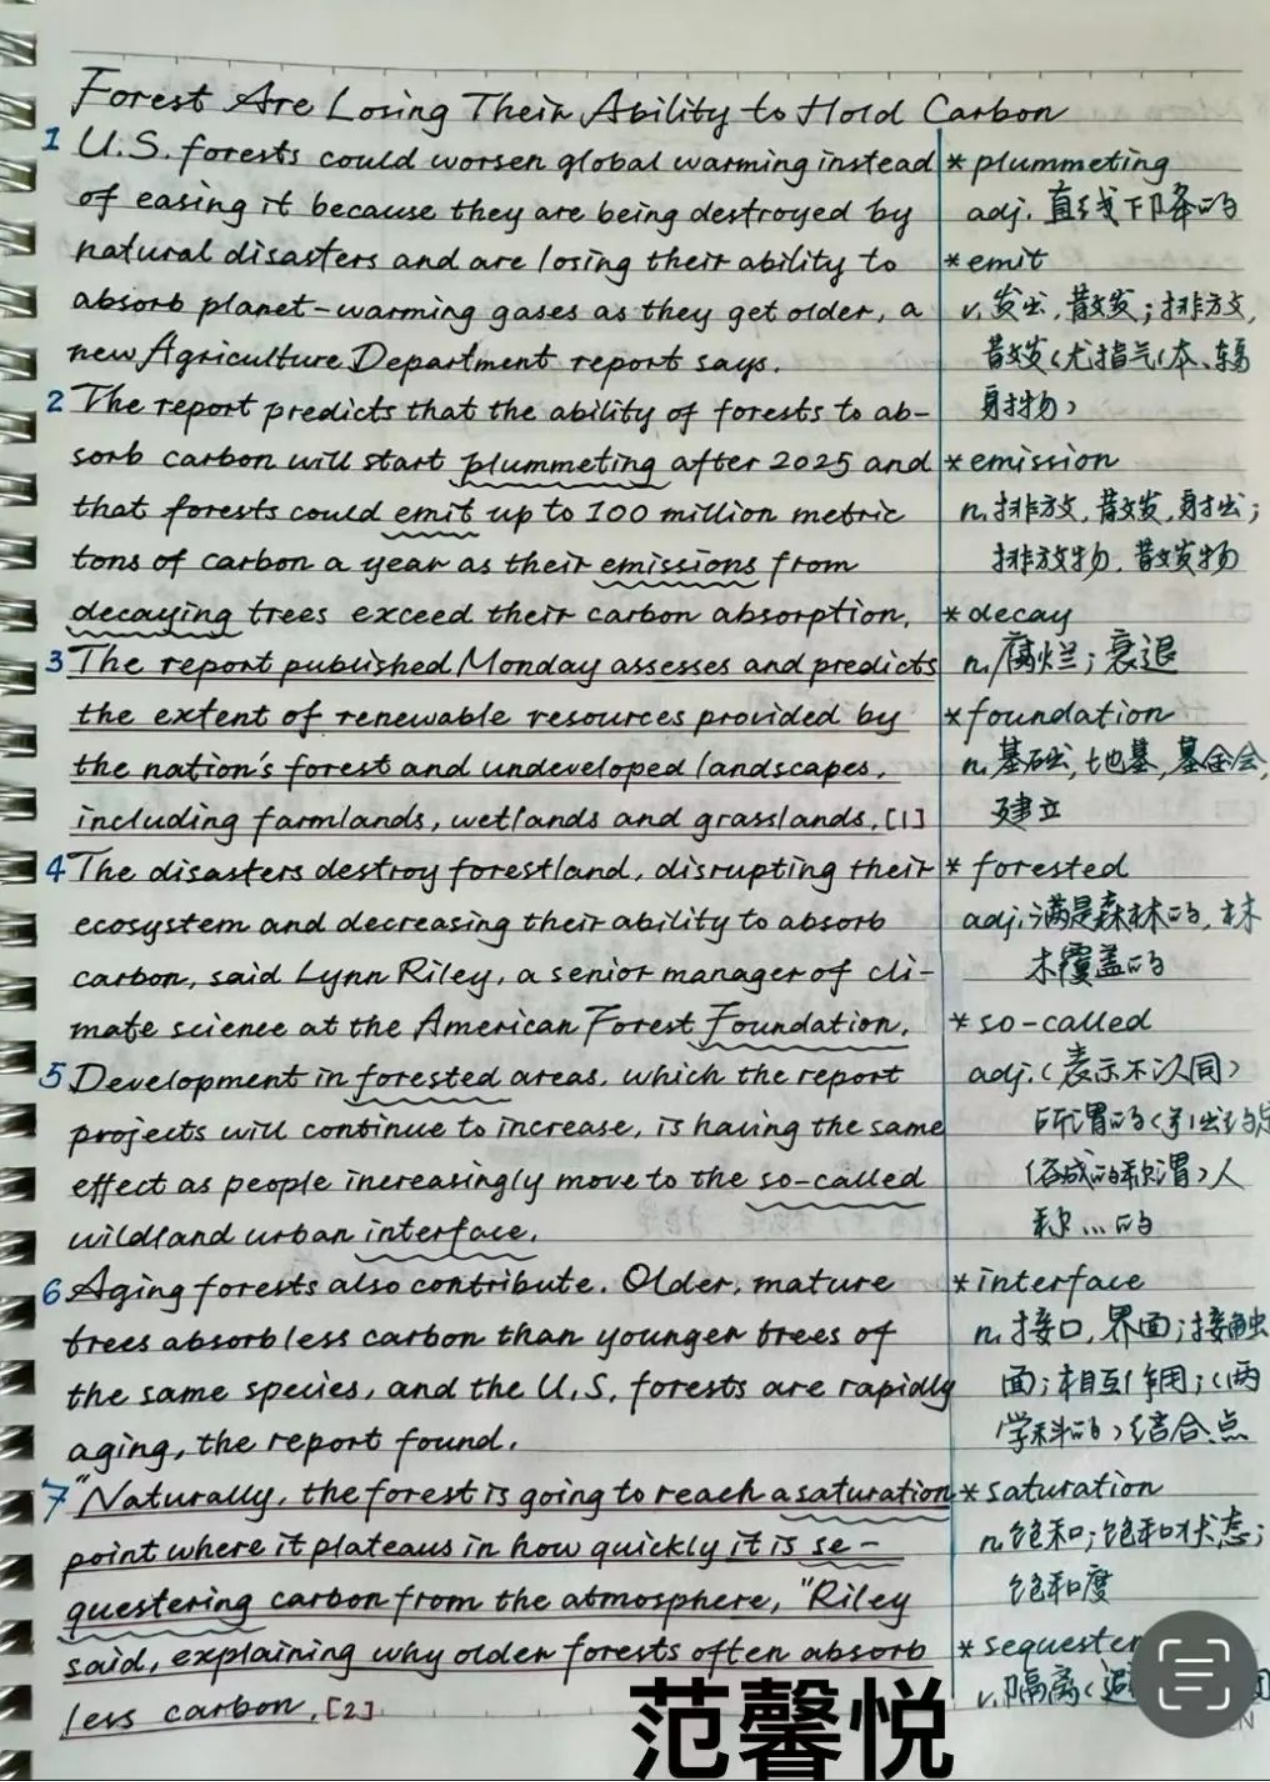 Forest Are Losing Their Ability to Hold Carbon
1 U.S. forests could worsen global warming instead
of easing it because they are being destroyed by
natural disasters and are losing their ability to
absorb planet-warming gases as they get older, a
new Agriculture Department report says.
2 The report predicts that the ability of forests to ab-
sorb carbon will start plummeting after 2025 and
that forests could emit up to 100 million metric
tons of carbon a year as their emissions from
decaying trees exceed their carbon absorption.
3 The report published Monday assesses and predicts
the extent of renewable resources provided by
the nation's forest and undeveloped landscapes,
including farmlands, wetlands and grasslands. [1]
4 The disasters destroy forestland, disrupting their
ecosystem and decreasing their ability to absorb
carbon, said Lynn Riley, a senior manager of cli-
mate science at the American Forest Foundation.
5 Development in forested areas, which the report
projects will continue to increase, is having the same
effect as people increasingly move to the so-called
wildland urban interface.
6 Aging forests also contribute. Older, mature
trees absorb less carbon than younger trees of
the same species, and the U.S. forests are rapidly
aging, the report found.
7 "Naturally, the forest is going to reach a saturation
point where it plateaus in how quickly it is se-
questering carbon from the atmosphere," Riley
said, explaining why older forests often absorb
less carbon. [2]
* plummeting
adj. 直线下降的
* emit
v. 发出,散发;排放,
散发(尤指气体、辐
射物)
* emission
n. 排放,散发,射出;
排放物,散发物
* decay
n. 腐烂;衰退
* foundation
n. 基础,地基,基金会,
建立
* forested
adj. 满是森林的,林
木覆盖的
* so-called
adj. (表示不认同)
所谓的(引出
(俗成的称谓)人
称...的
* interface
n. 接口,界面;接触
面;相互作用;(两
学科的)结合点
* saturation
n. 饱和;饱和状态;
饱和度
* sequester
v. 隔离(
范馨悦